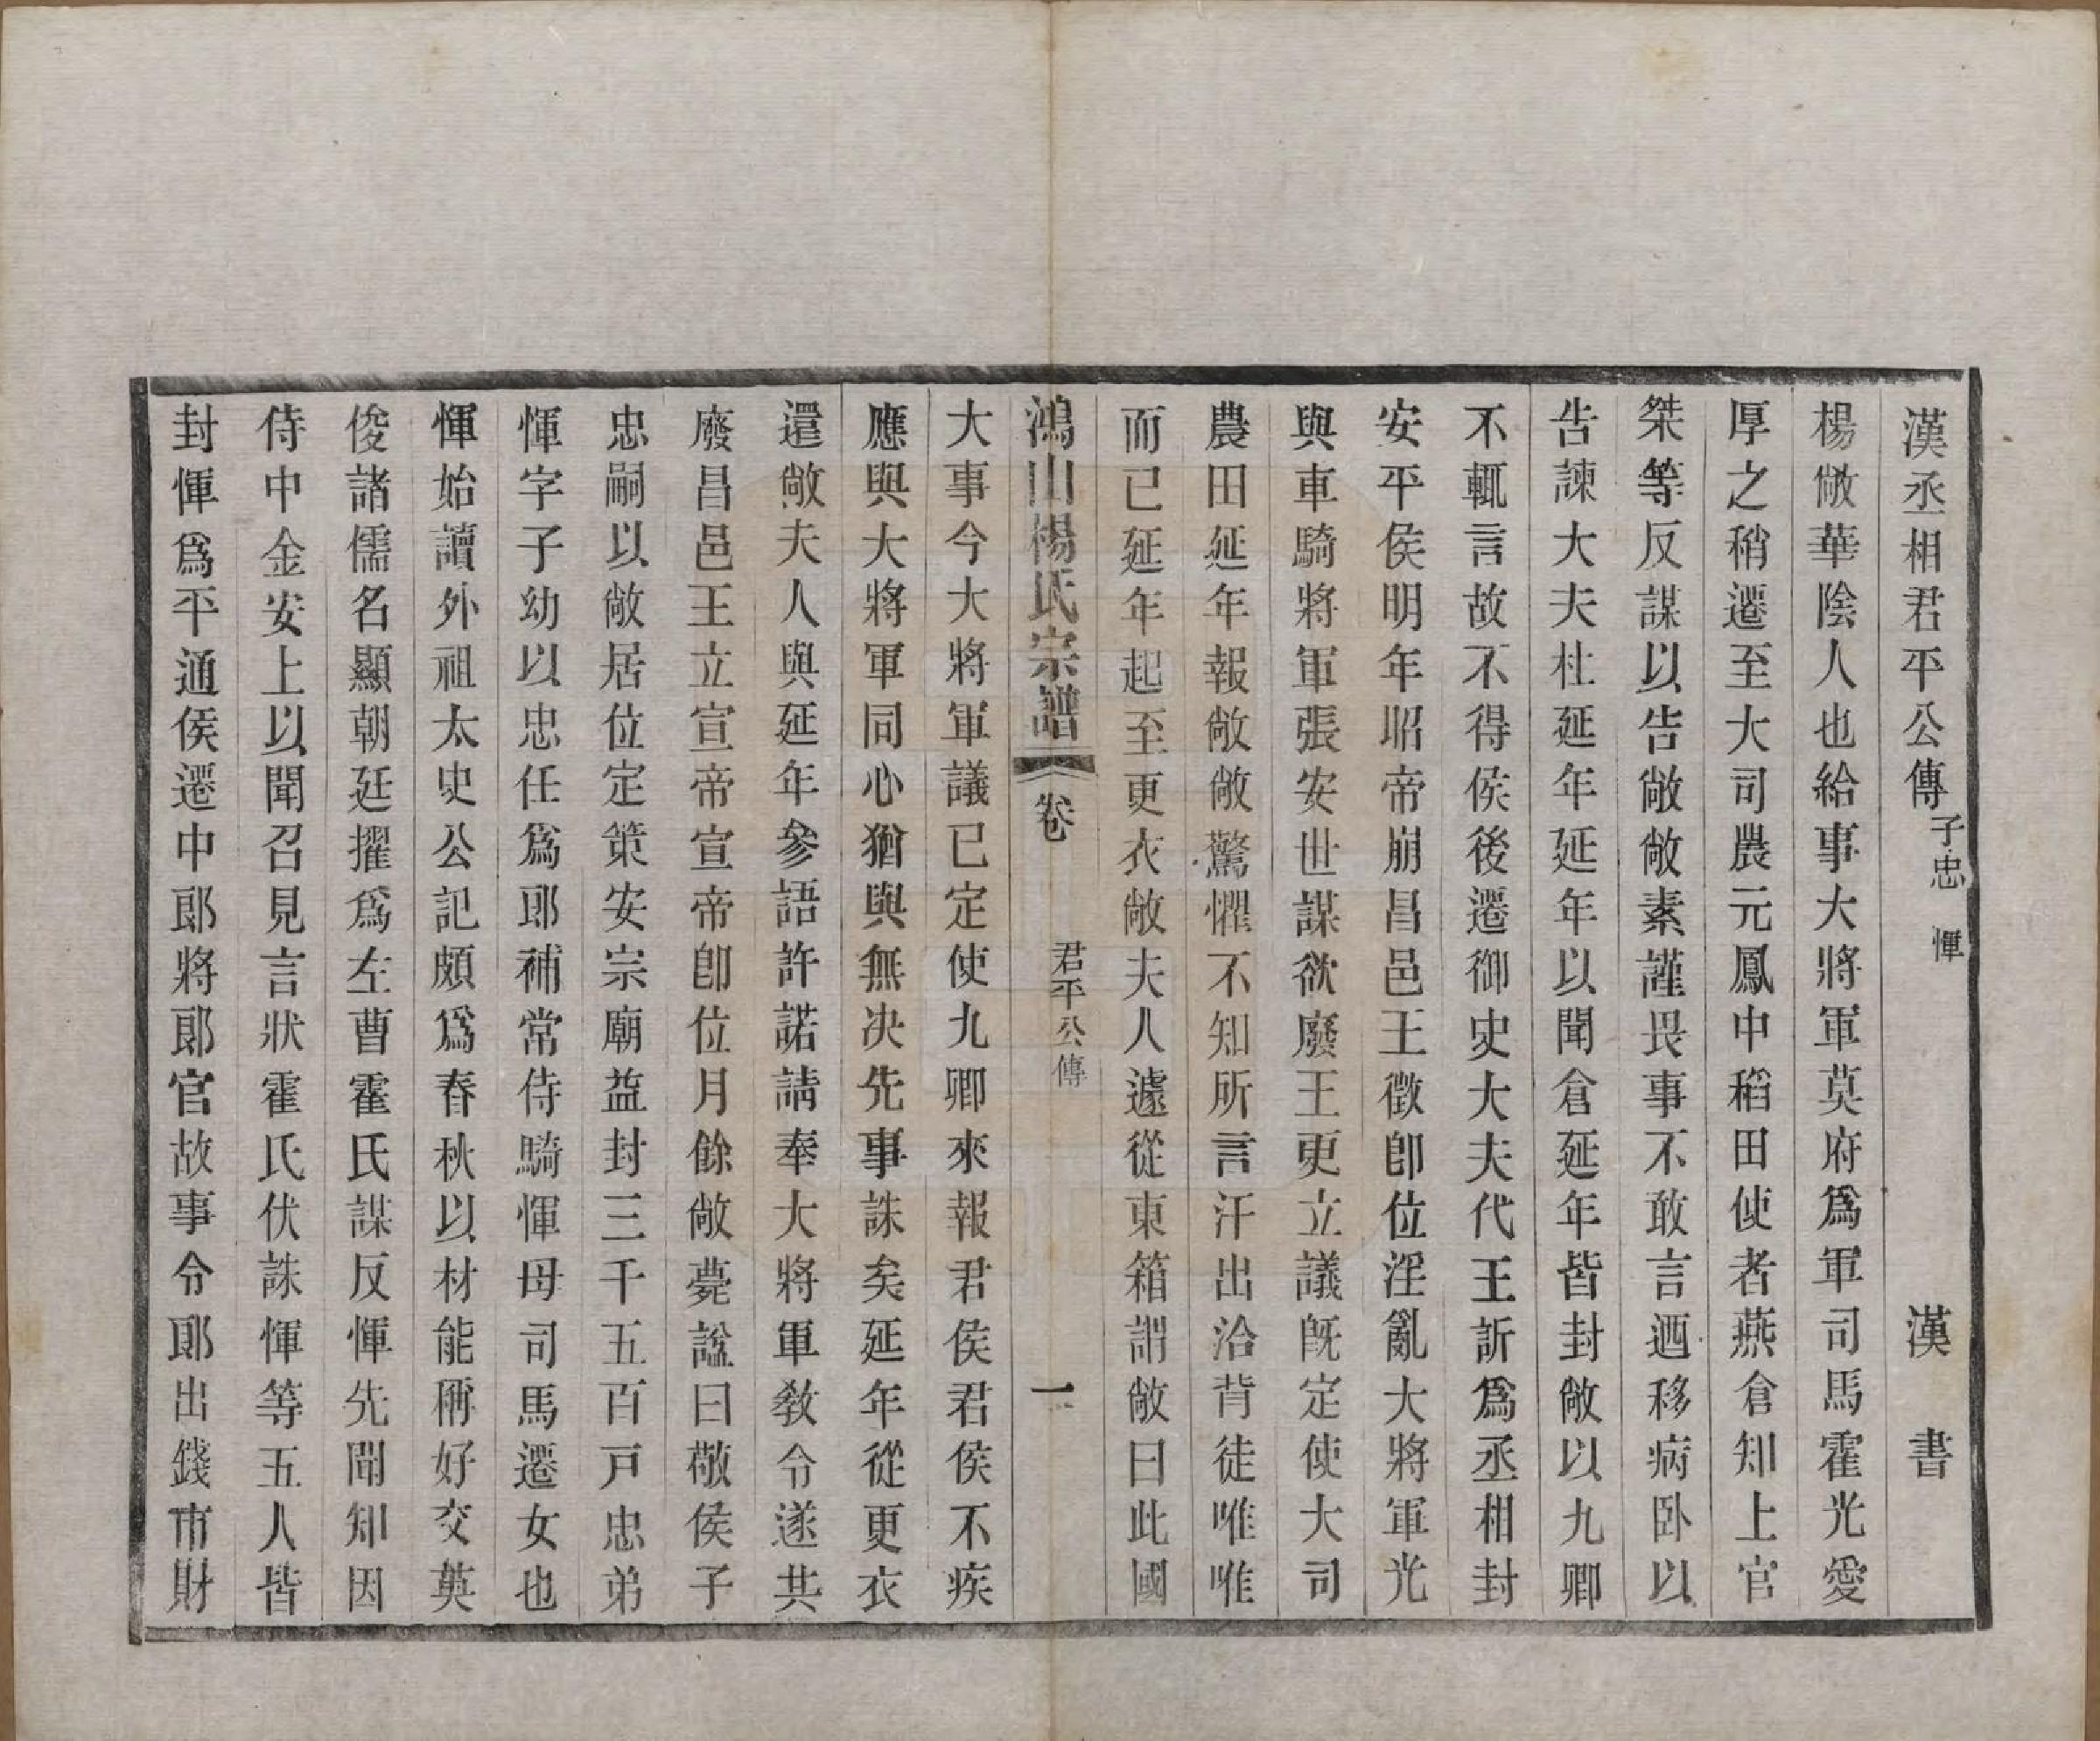 漢丞相君平公傳子忠 惲 漢書
楊敞華陰人也給事大將軍莫府爲軍司馬霍光愛
厚之稍遷至大司農元鳳中稻田使者燕倉知上官
桀等反謀以告敞敞素謹畏事不敢言迺移病卧以
告諫大夫杜延年延年以聞倉延年皆封敞以九卿
不輒言故不得侯後遷御史大夫代王訢爲丞相封
安平侯明年昭帝崩昌邑王徵卽位淫亂大將軍光
與車騎將軍張安世謀欲廢王更立議旣定使大司
農田延年報敞敞驚懼不知所言汗出洽背徒唯唯
而已延年起至更衣敞夫人遽從東箱謂敞曰此國
鴻山楊氏宗譜 卷 君平公傳 一
大事今大將軍議已定使九卿來報君侯君侯不疾
應與大將軍同心猶與無决先事誅矣延年從更衣
還敞夫人與延年參語許諾請奉大將軍敎令遂共
廢昌邑王立宣帝宣帝卽位月餘敞薨諡曰敬侯子
忠嗣以敞居位定策安宗廟益封三千五百戸忠弟
惲字子幼以忠任爲郎補常侍騎惲母司馬遷女也
惲始讀外祖太史公記頗爲春秋以材能稱好交英
俊諸儒名顯朝廷擢爲左曹霍氏謀反惲先聞知因
侍中金安上以聞召見言狀霍氏伏誅惲等五人皆
封惲爲平通侯遷中郎將郎官故事令郎出錢市財